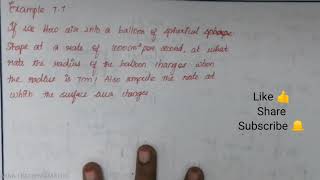 Example 7.7
If we blow air into a balloon of spherical
shape at a rate of 1000 cm³ per second, at what
rate the radius of the balloon changes when
the radius is 7cm? Also compute the rate at
which the surface area changes.
Like 👍
Share
Subscribe 🔔